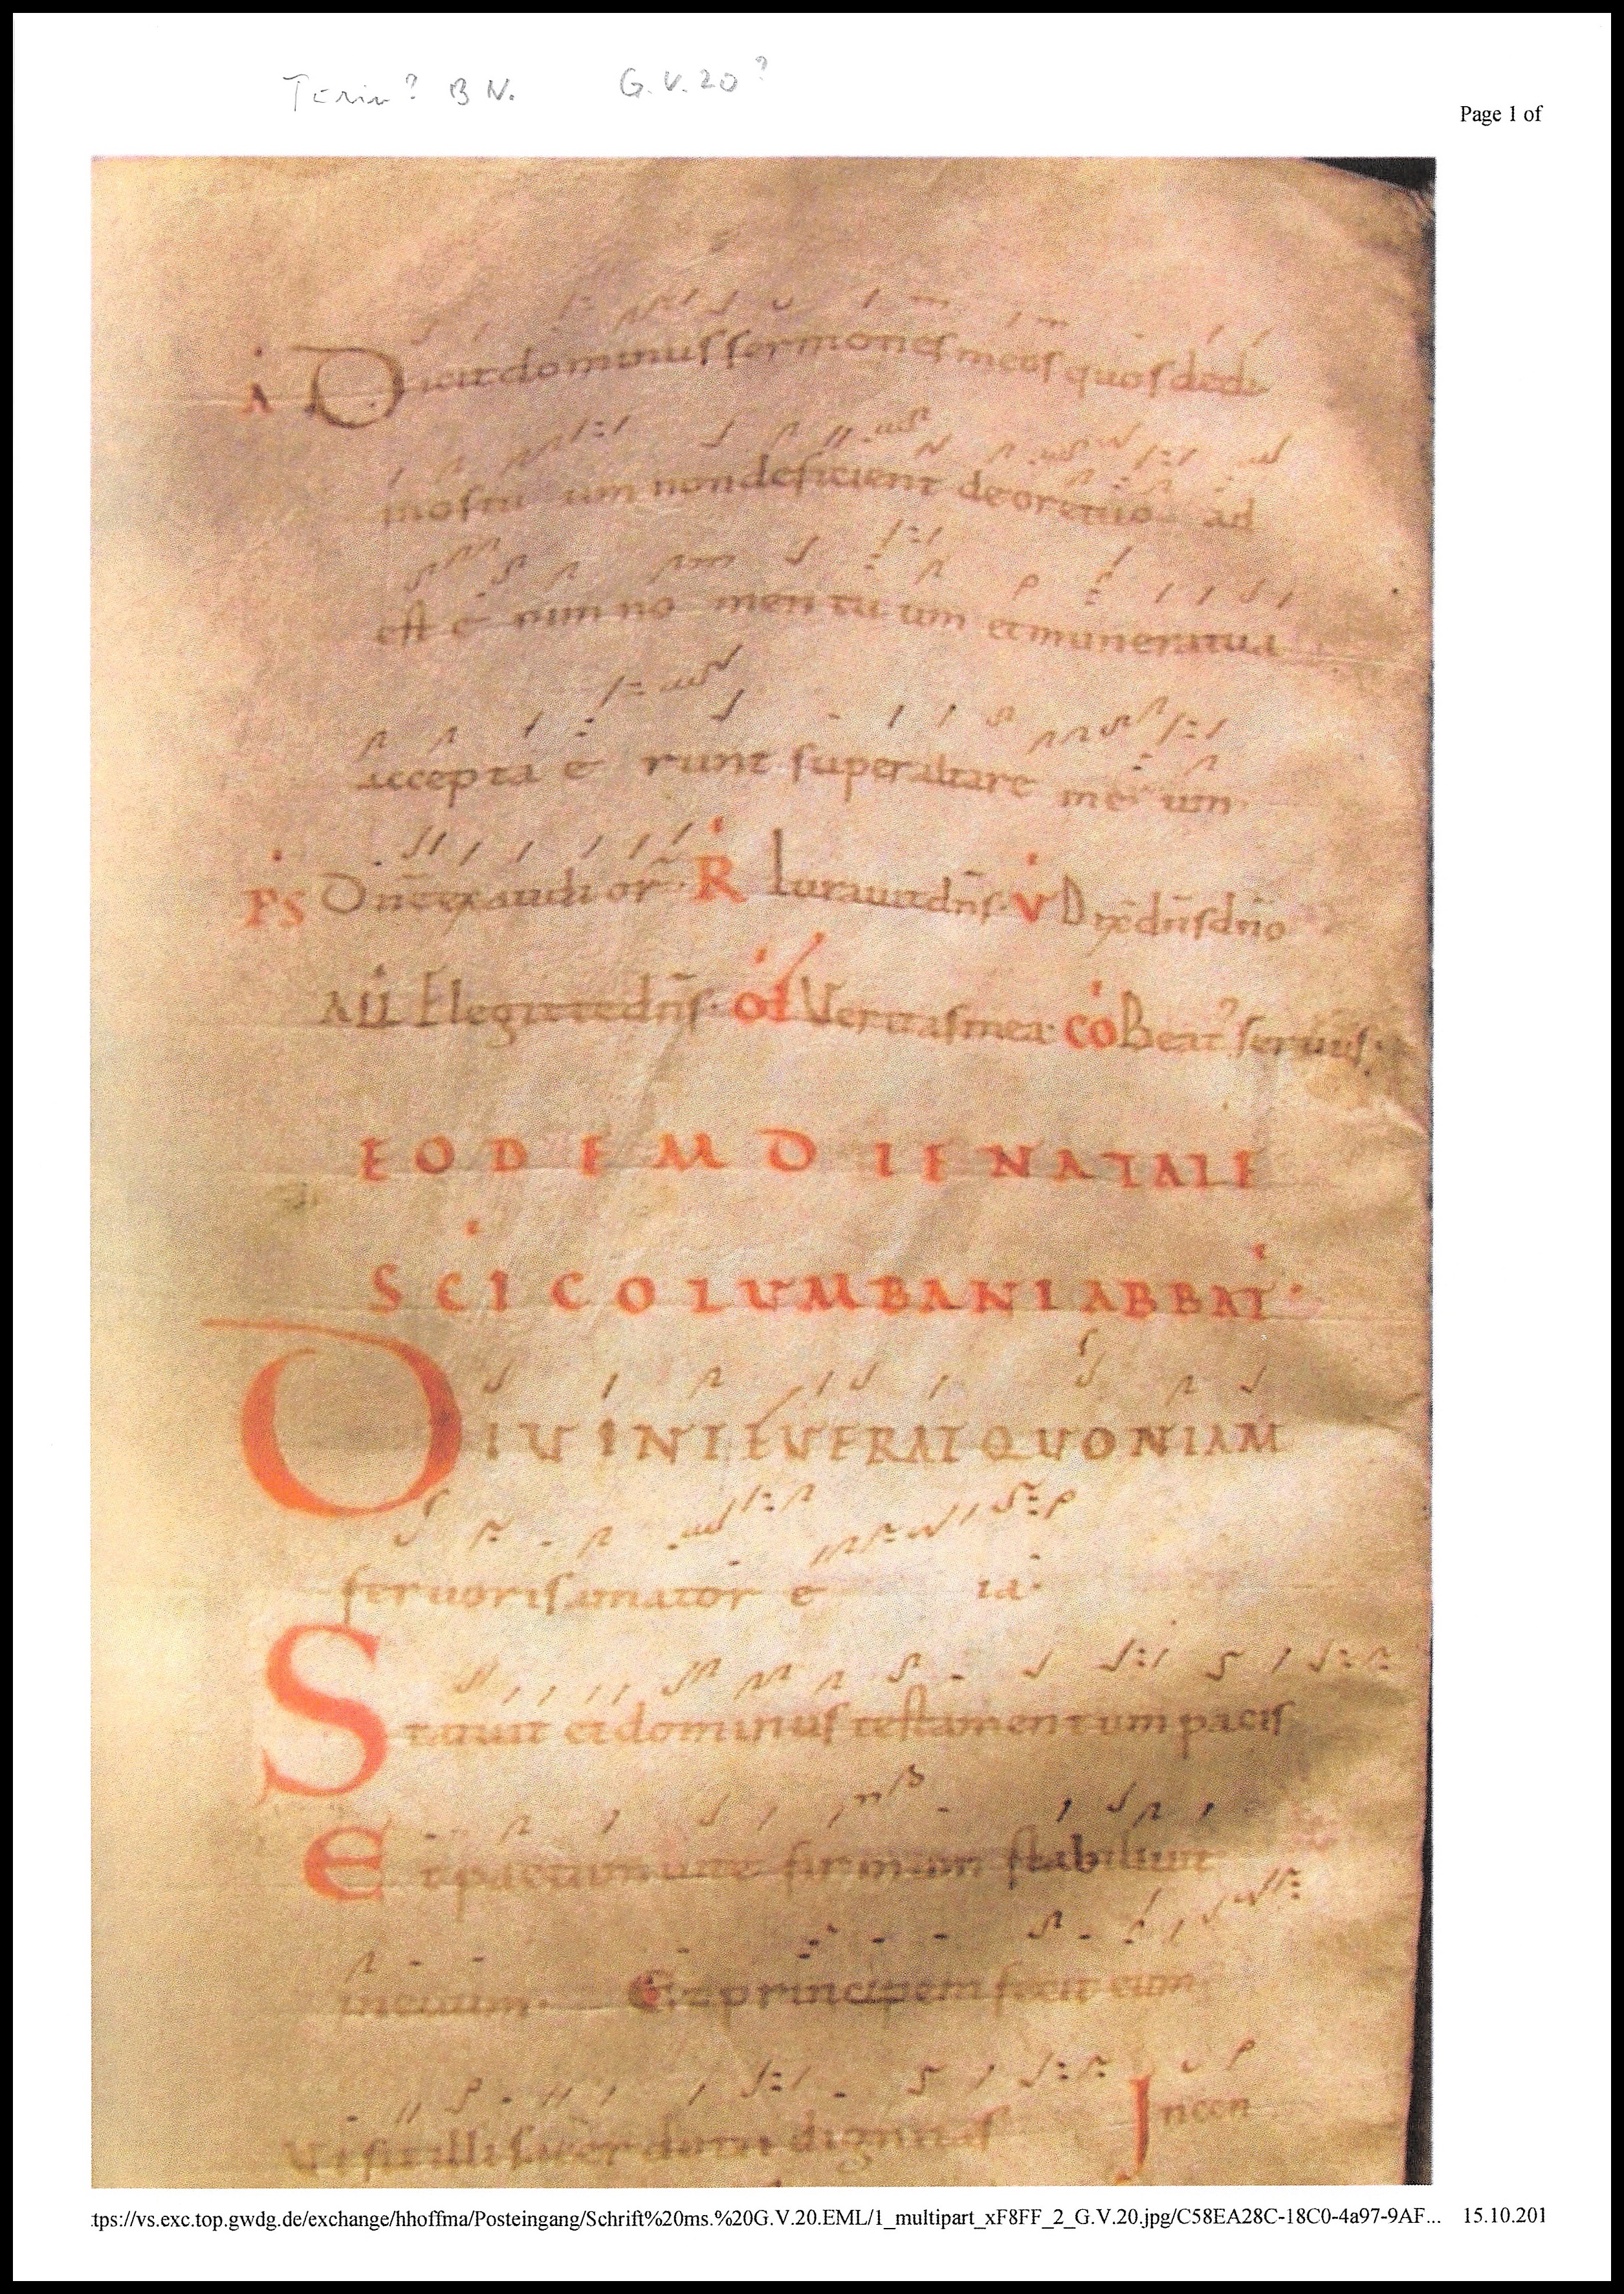 Turin? B N. G.V.20?
Page 1 of
A Dicit dominus sermones meos quos dedi
in os tu um non deficient de ore tuo ad
est e nim no men tu um et munera tua
accepta e runt super altare me um
PS Dne exaudi or R Iurauit dns V Dix dns dno
All Elegit te dns of Veritas mea co Beat seruus
EODEM DIE NATALE
SCI COLUMBANI ABBAT
DIVINI FUERAT QUONIAM
feruoris amator e ia
Statuit ei dominus testamentum pacis
Et pactum uite firmum stabiliuit
in euum Et principem fecit eum
Ut sit illi sacerdotii dignitas Incon
:tps://vs.exc.top.gwdg.de/exchange/hhoffma/Posteingang/Schrift%20ms.%20G.V.20.EML/1_multipart_xF8FF_2_G.V.20.jpg/C58EA28C-18C0-4a97-9AF... 15.10.201